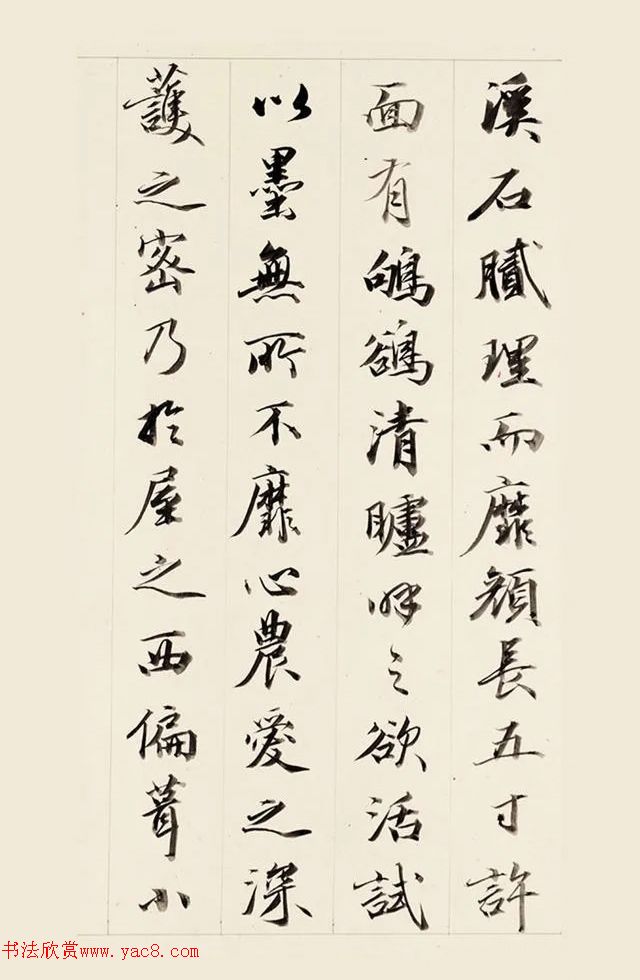 溪石膩理而靡顏長五寸許
面有鴝鵒清矑眸之欲活試
以墨無所不靡心農愛之深
護之密乃於屋之西偏葺小
书法欣赏www.yac8.com